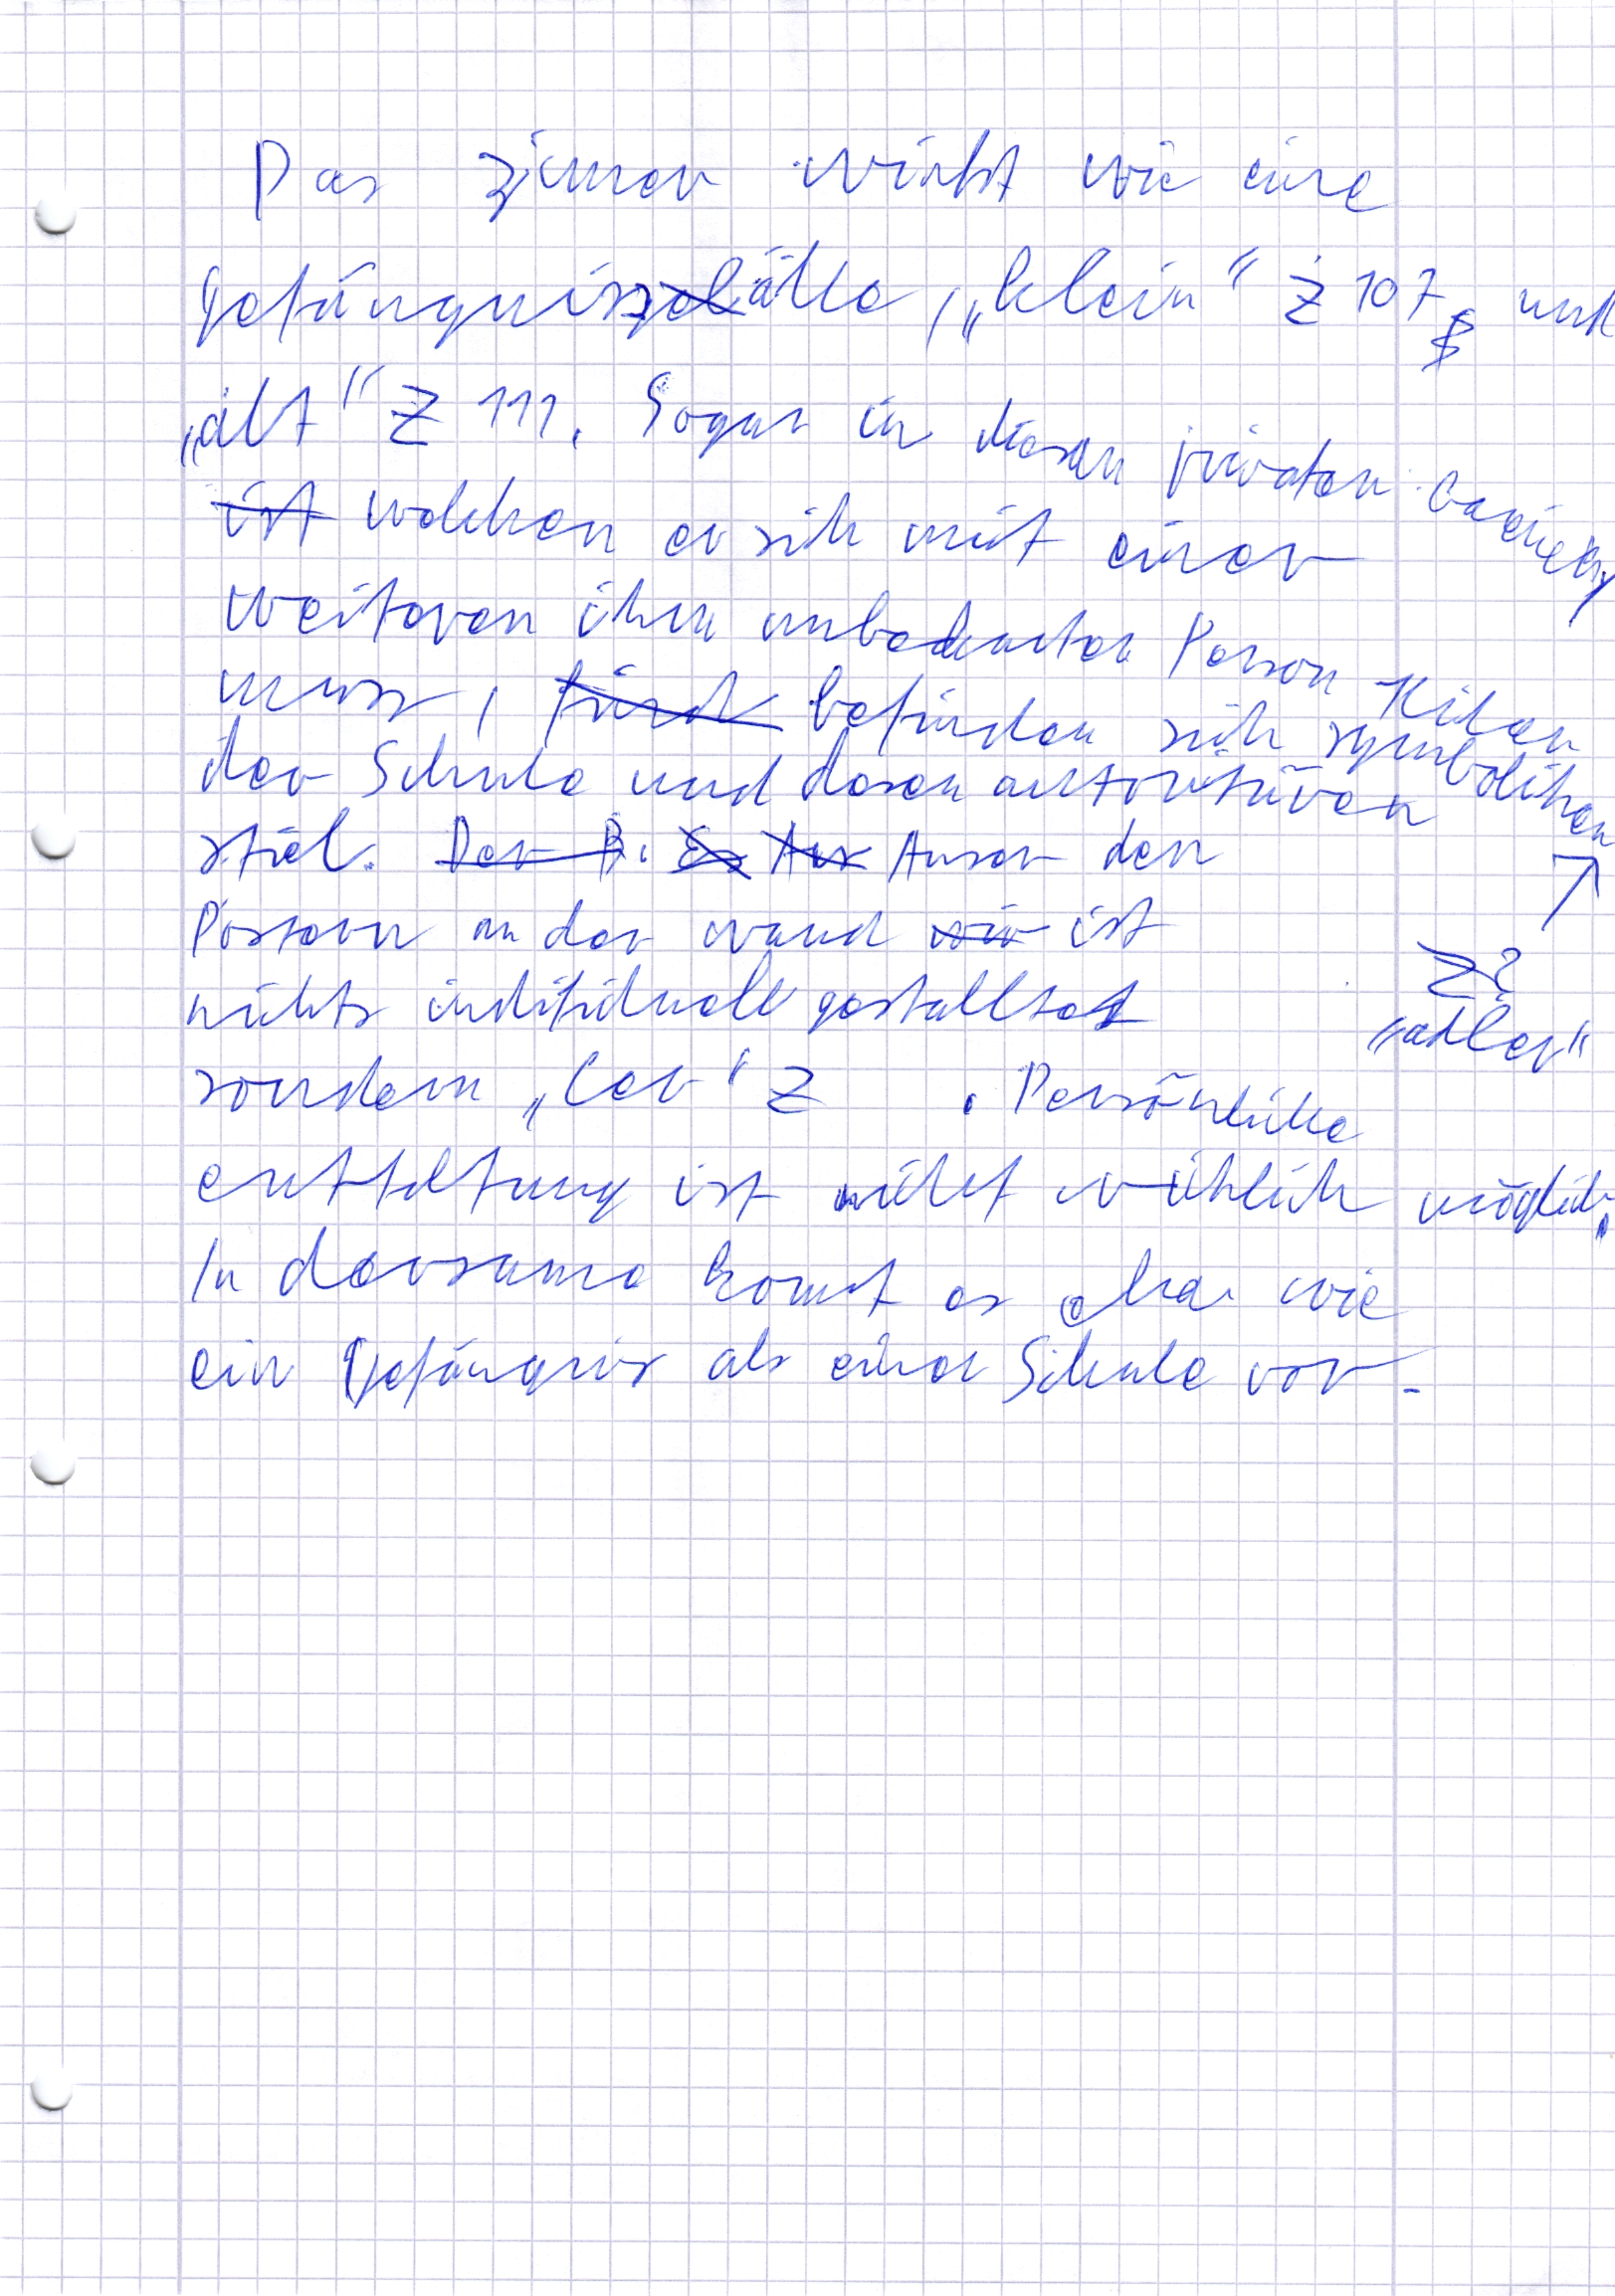 Das zimer wirkt wie eine
gefängniszälle, „klein“ Z 107 und
„alt“ Z 111. Sogar in diesen privaten bereich
ist welchen er sich mit einer
weiteren ihm unbekanten Person teilen
muss, befinden sich symbolihen
der Schule und desen autoritären
stiel. Der B. Es Aus Auser den
Postern an der wand wir ist
nichts indifiduell gestalltet
Z?
"adler"
sondern „leer“ Z . Persönliche
entfaltung ist nicht wirklich möglich.
In der summe komt es eher wie
ein Gefängnis als einer Schule vor.